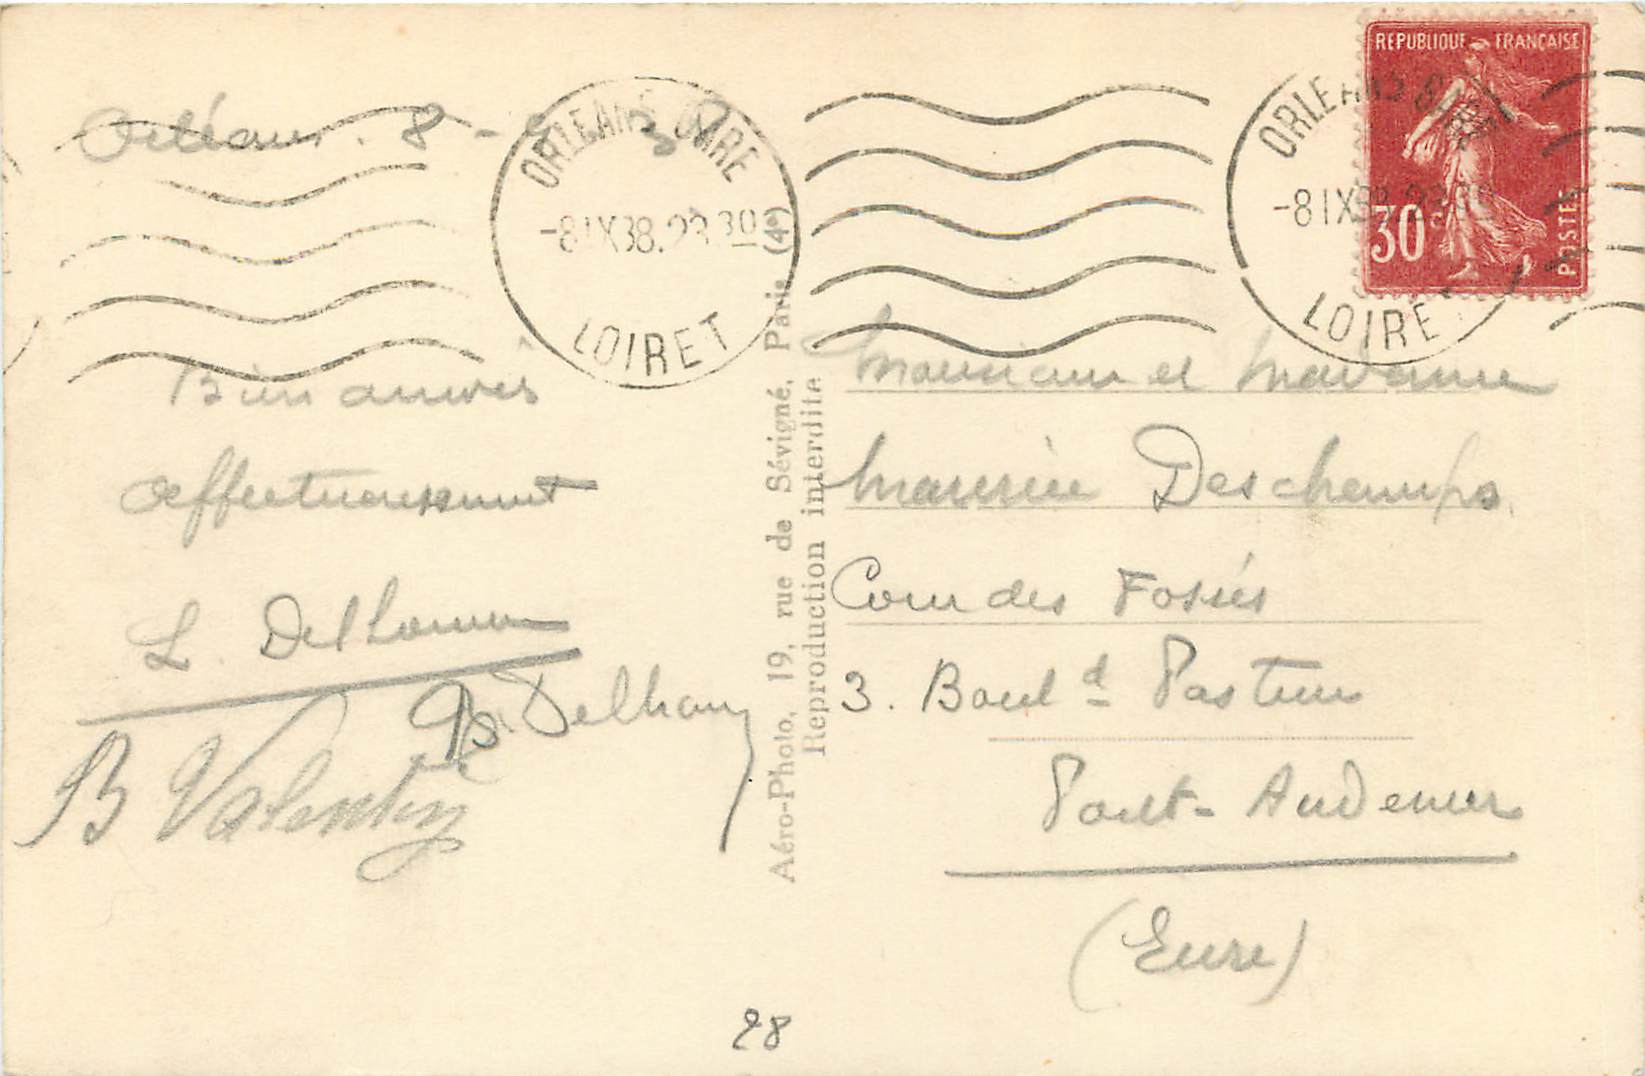 Orléans. 8 - 9 38
Bien arrivés
affectueusement
L. Delhomme
B. Delhom
B Valentin
ORLEANS GARE
-8 IX 38. 23 30
LOIRET
Aéro-Photo, 19, rue de Sévigné, Paris (4e)
Reproduction interdite
ORLEANS GARE
-8 IX 38. 23 30
LOIRET
REPUBLIQUE FRANÇAISE
30 c
POSTES
Monsieur et Madame
Maurice Deschamps.
Cour des Fossés
3. Boul d Pasteur
Pont-Audemer
(Eure)
28